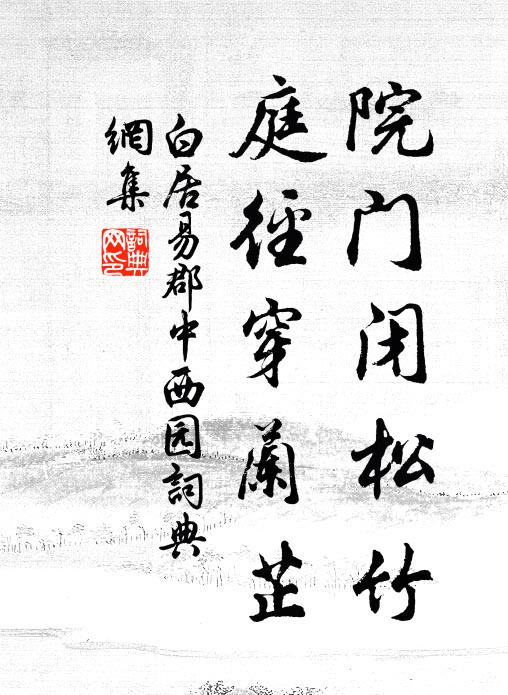 院门闭松竹
庭径穿蘭芷
白居易郡中西园詞典
網集
詞典網印